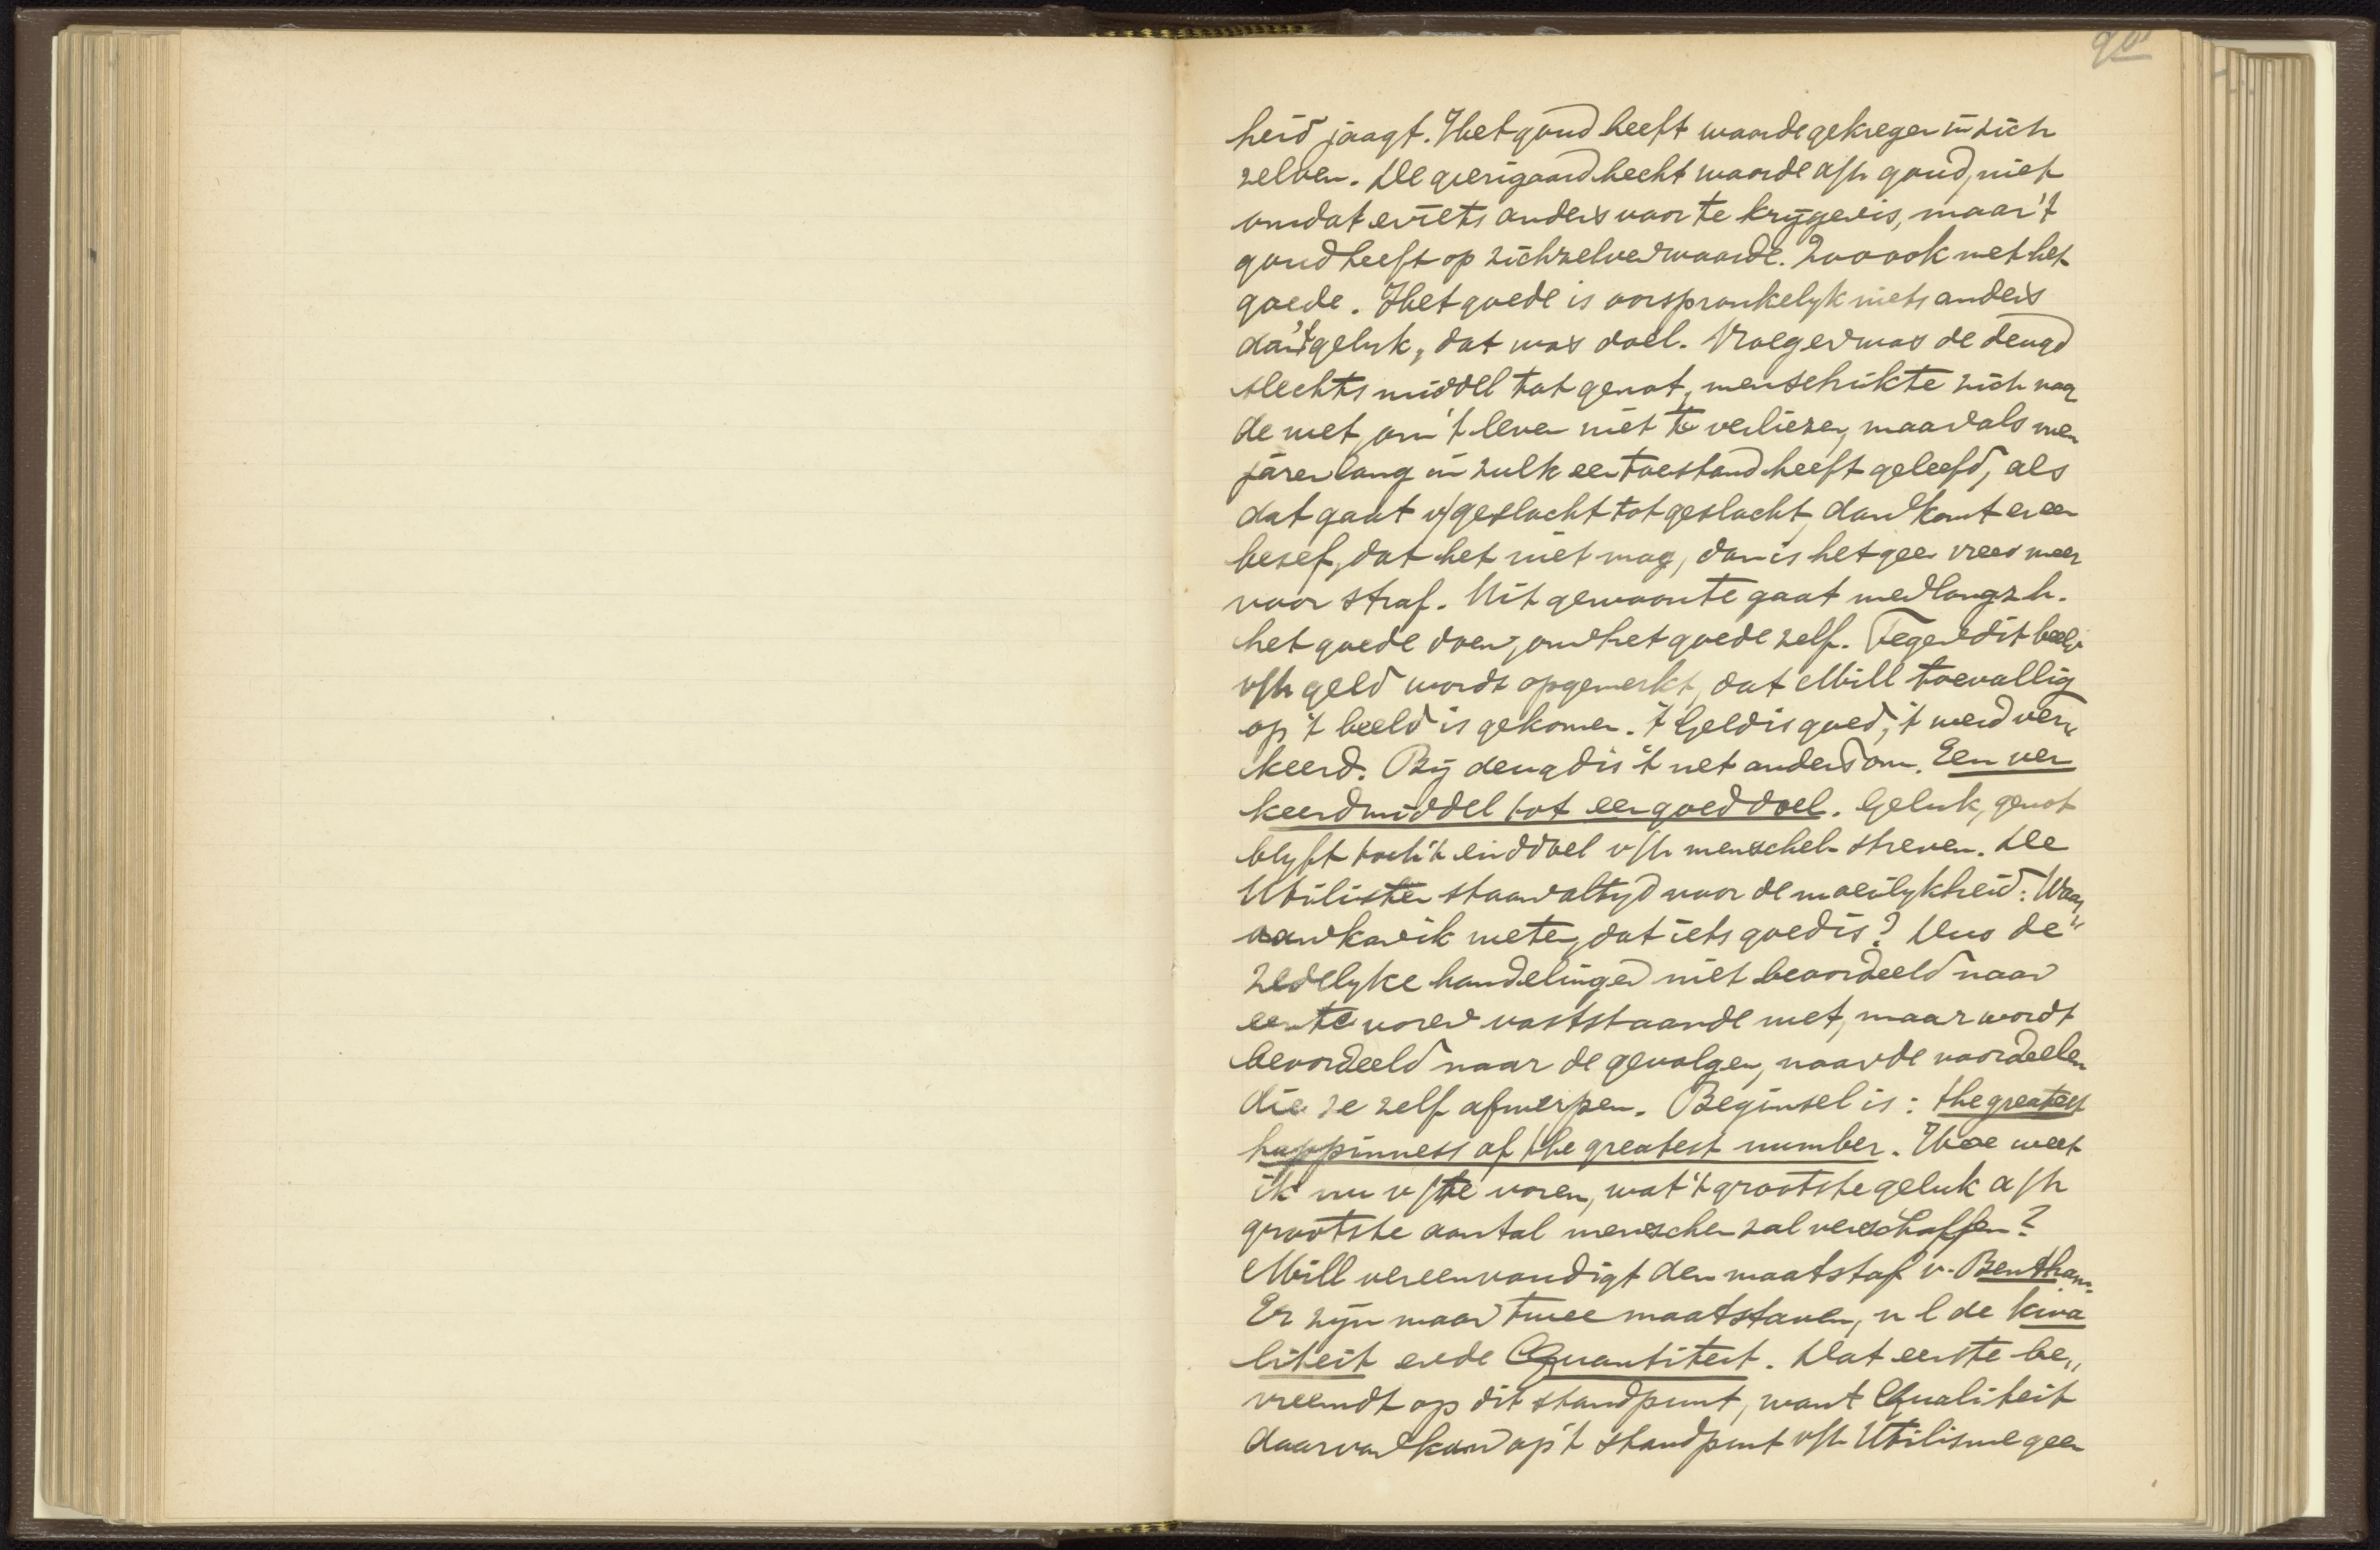 90
heid jaagt. Het goud heeft waarde gekregen in zich
zelven. De gierigaard hecht waarde a/h goud, niet
omdat er iets anders voor te krijgen is, maar 't
goud heeft op zichzelven waarde. Zoo ook met het
goede. Het goede is oorspronkelyk niets anders
dan 't geluk, dat was doel. Vroeger was de deugd
slechts middel tot genot, men schikte zich naar
de wet, om 't leven niet te verliezen, maar als men
jaren lang in zulk een toestand heeft geleefd, als
dat gaat v/geslacht tot geslacht, dan komt er een
besef, dat het niet mag, dan is het geen vrees meer
voor straf. Uit gewoonte gaat men langz h.
het goede doen, om het goede zelf. Tegen dit beeld
v/h geld wordt opgemerkt, dat Mill toevallig
op 't beeld is gekomen. 't Geld is goed, 't werd ver„
keerd. Bij deugd is 't net andersom. Een ver
keerd middel tot een goed doel. Geluk, genot
blyft toch 't einddoel v/h menschel. streven. De
Utilisten staan altyd voor de moeilykheid: Waar„
van kan ik weten, dat iets goed is? Dus de"
zedelyke handelingen niet beoordeeld naar
een te voren vaststaande wet, maar wordt
beoordeeld naar de gevolgen, naar de voordeelen
die ze zelf afwerpen. Beginsel is: the greatest
happinness of the greatest number. Hoe weet
ik nu v/te voren, wat 't grootste geluk a/h
grootste aantal menschen zal verschaffen?
Mill vereenvoudigt den maatstaf v. Bentham.
Er zijn maar twee maatstaven, n l de kwa
liteit en de Quantiteit. Dat eerste be„
vreemdt op dit standpunt, want Qualiteit
daarvan kan op 't standpunt v/h Utilisme geen